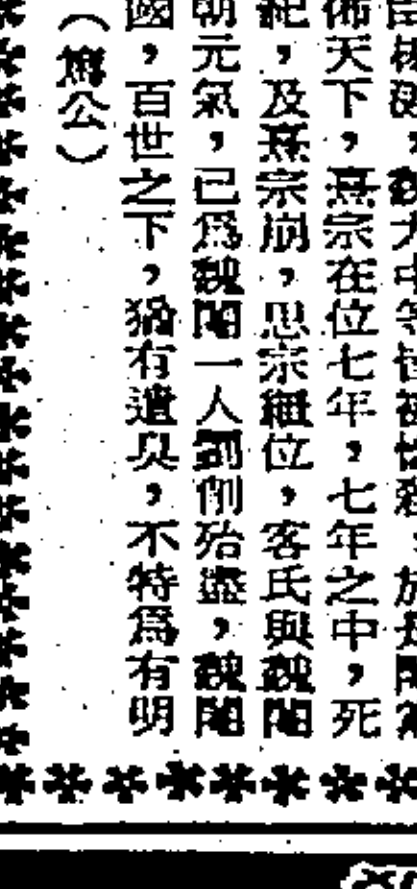 魏大中等皆被慘殺，於是閹黨
佈天下，熹宗在位七年，七年之中，死
紀，及熹宗崩，思宗繼位，客氏與魏閹
朝元氣，已爲魏閹一人斵削殆盡，魏閹
國，百世之下，猶有遺臭，不特爲有明
（篤公）